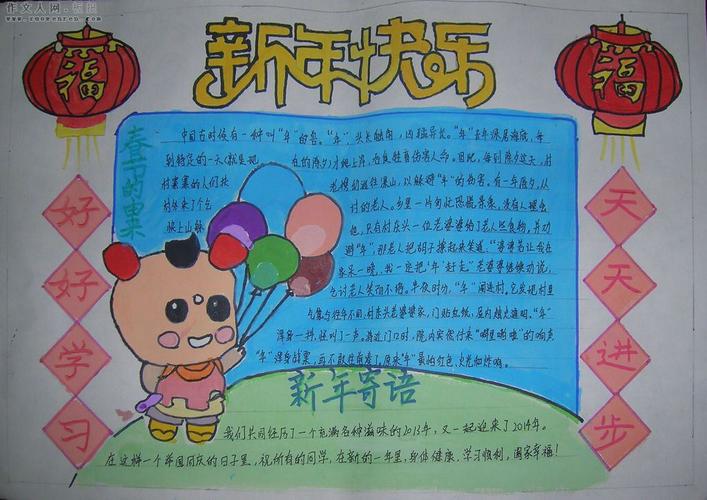 作文人网
新年快乐
福
福
好好学习
天天进步
中国古时候有一种叫“年”的兽。“年”,头长触角,凶猛异长。“年”长年深居海底,每
到特定的一天就是 的除夕才爬上岸,
村寨寨的人们扶 老携幼逃往深山,以躲避“年”的伤害。有一年除夕,从
村外来了个乞 讨的老人。乡里一片匆忙恐慌景象,没有人理会
他,只有村东头一位老婆婆给了老人些食物,并劝
躲上山躲 避“年”,那老人把胡子撩起来笑道:“婆婆若让我在
家呆一晚,我一定把‘年’赶走”老婆婆继续劝说,
乞讨老人笑而不语。半夜时分,“年”闯进村。它发现村里
气氛与往年不同,村东头老婆婆家,门贴红纸,屋内烛火通明。“年”
浑身一抖,怪叫了一声。将近门口时,院内突然传来“噼里啪啦”的响声
“年”浑身战栗,再不敢往前凑了。原来“年”最怕红色、火光和炸响。
新年寄语
我们共同经历了一个充满各种滋味的2013年,又一起迎来了2014年。
在这样一个举国同庆的日子里,祝所有的同学,在新的一年里,身体健康,学习顺利,阖家幸福!